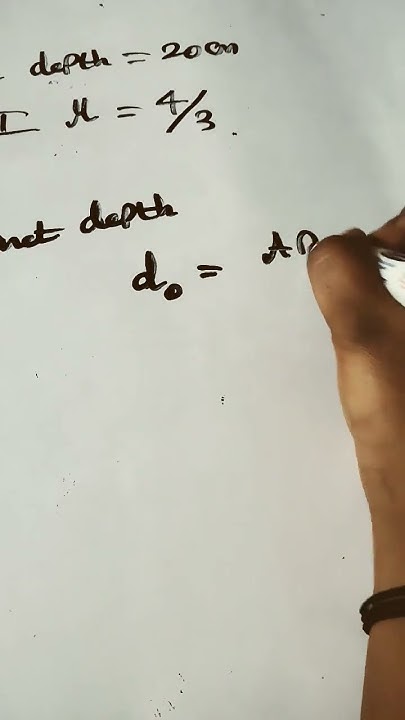 depth = 20cm
I μ = 4/3.
depth
d₀ = A